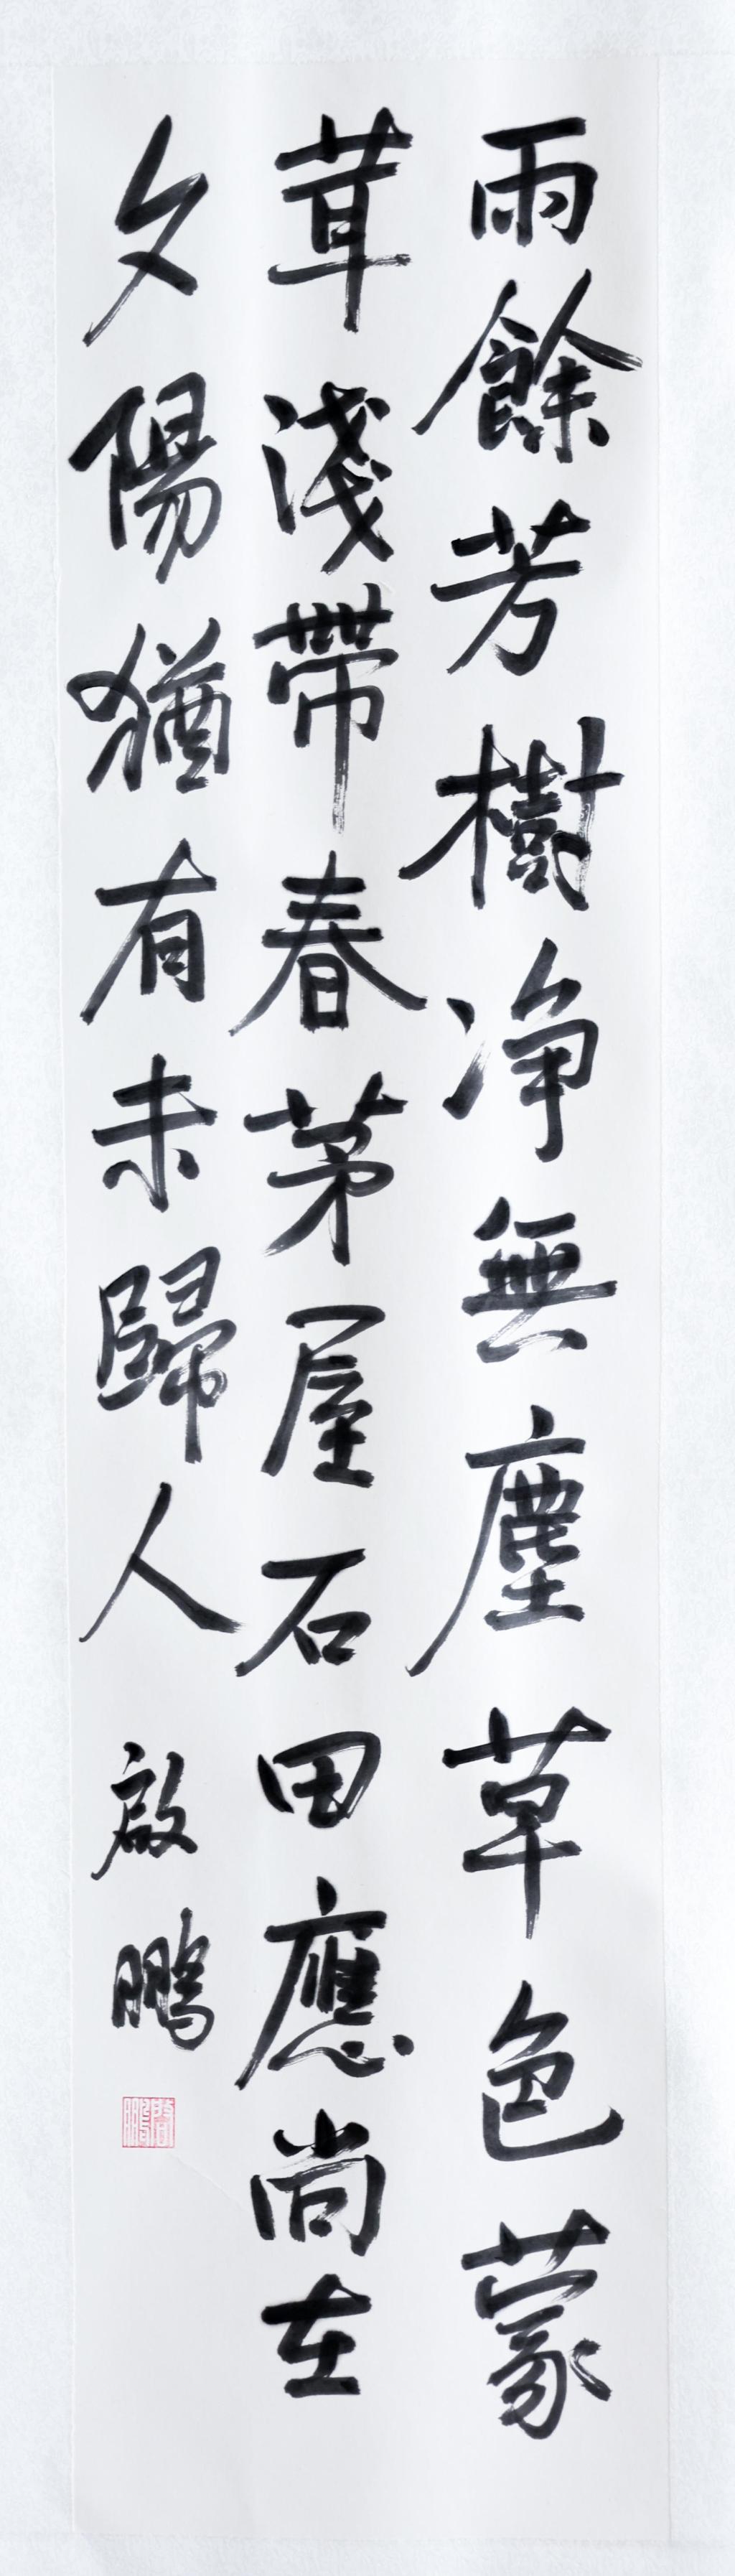 雨餘芳樹净無塵草色蒙
茸淺帶春茅屋石田應尚在
夕陽猶有未歸人
啟鵬